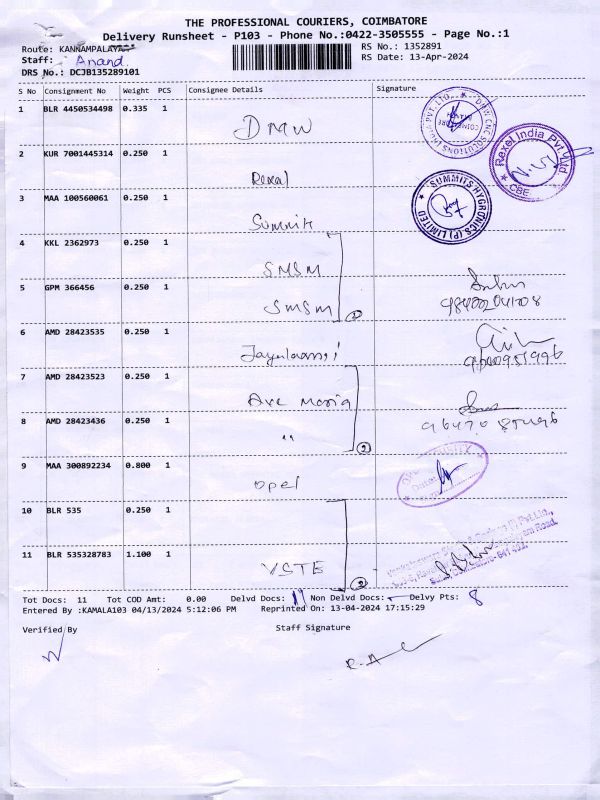 THE PROFESSIONAL COURIERS, COIMBATORE
Delivery Runsheet - P103 - Phone No.:0422-3505555 - Page No.:1
Route: KANNAMPALAYA
RS No.: 1352891
Staff: Anand.
RS Date: 13-Apr-2024
DRS No.: DCJB135289101
S No Consignment No Weight PCS Consignee Details Signature
1 BLR 4450534498 0.335 1 DMW
2 KUR 7001445314 0.250 1 Rexal
Rexel India Pvt Ltd
CBE
3 MAA 100560061 0.250 1 Summits
SUMMITS HYGRONICS (P) LIMITED
4 KKL 2362973 0.250 1 SMSM
5 GPM 366456 0.250 1 SMSM
2
6 AMD 28423535 0.250 1
7 AMD 28423523 0.250 1 Ave Maria
8 AMD 28423436 0.250 1 "
2
9 MAA 300892234 0.800 1 Opel
10 BLR 535 0.250 1
11 BLR 535328783 1.100 1 VSTE
2
Tot Docs: 11 Tot COD Amt: 0.00 Delvd Docs: 11 Non Delvd Docs: - Delvy Pts: 8
Entered By :KAMALA103 04/13/2024 5:12:06 PM Reprinted On: 13-04-2024 17:15:29
Verified By Staff Signature